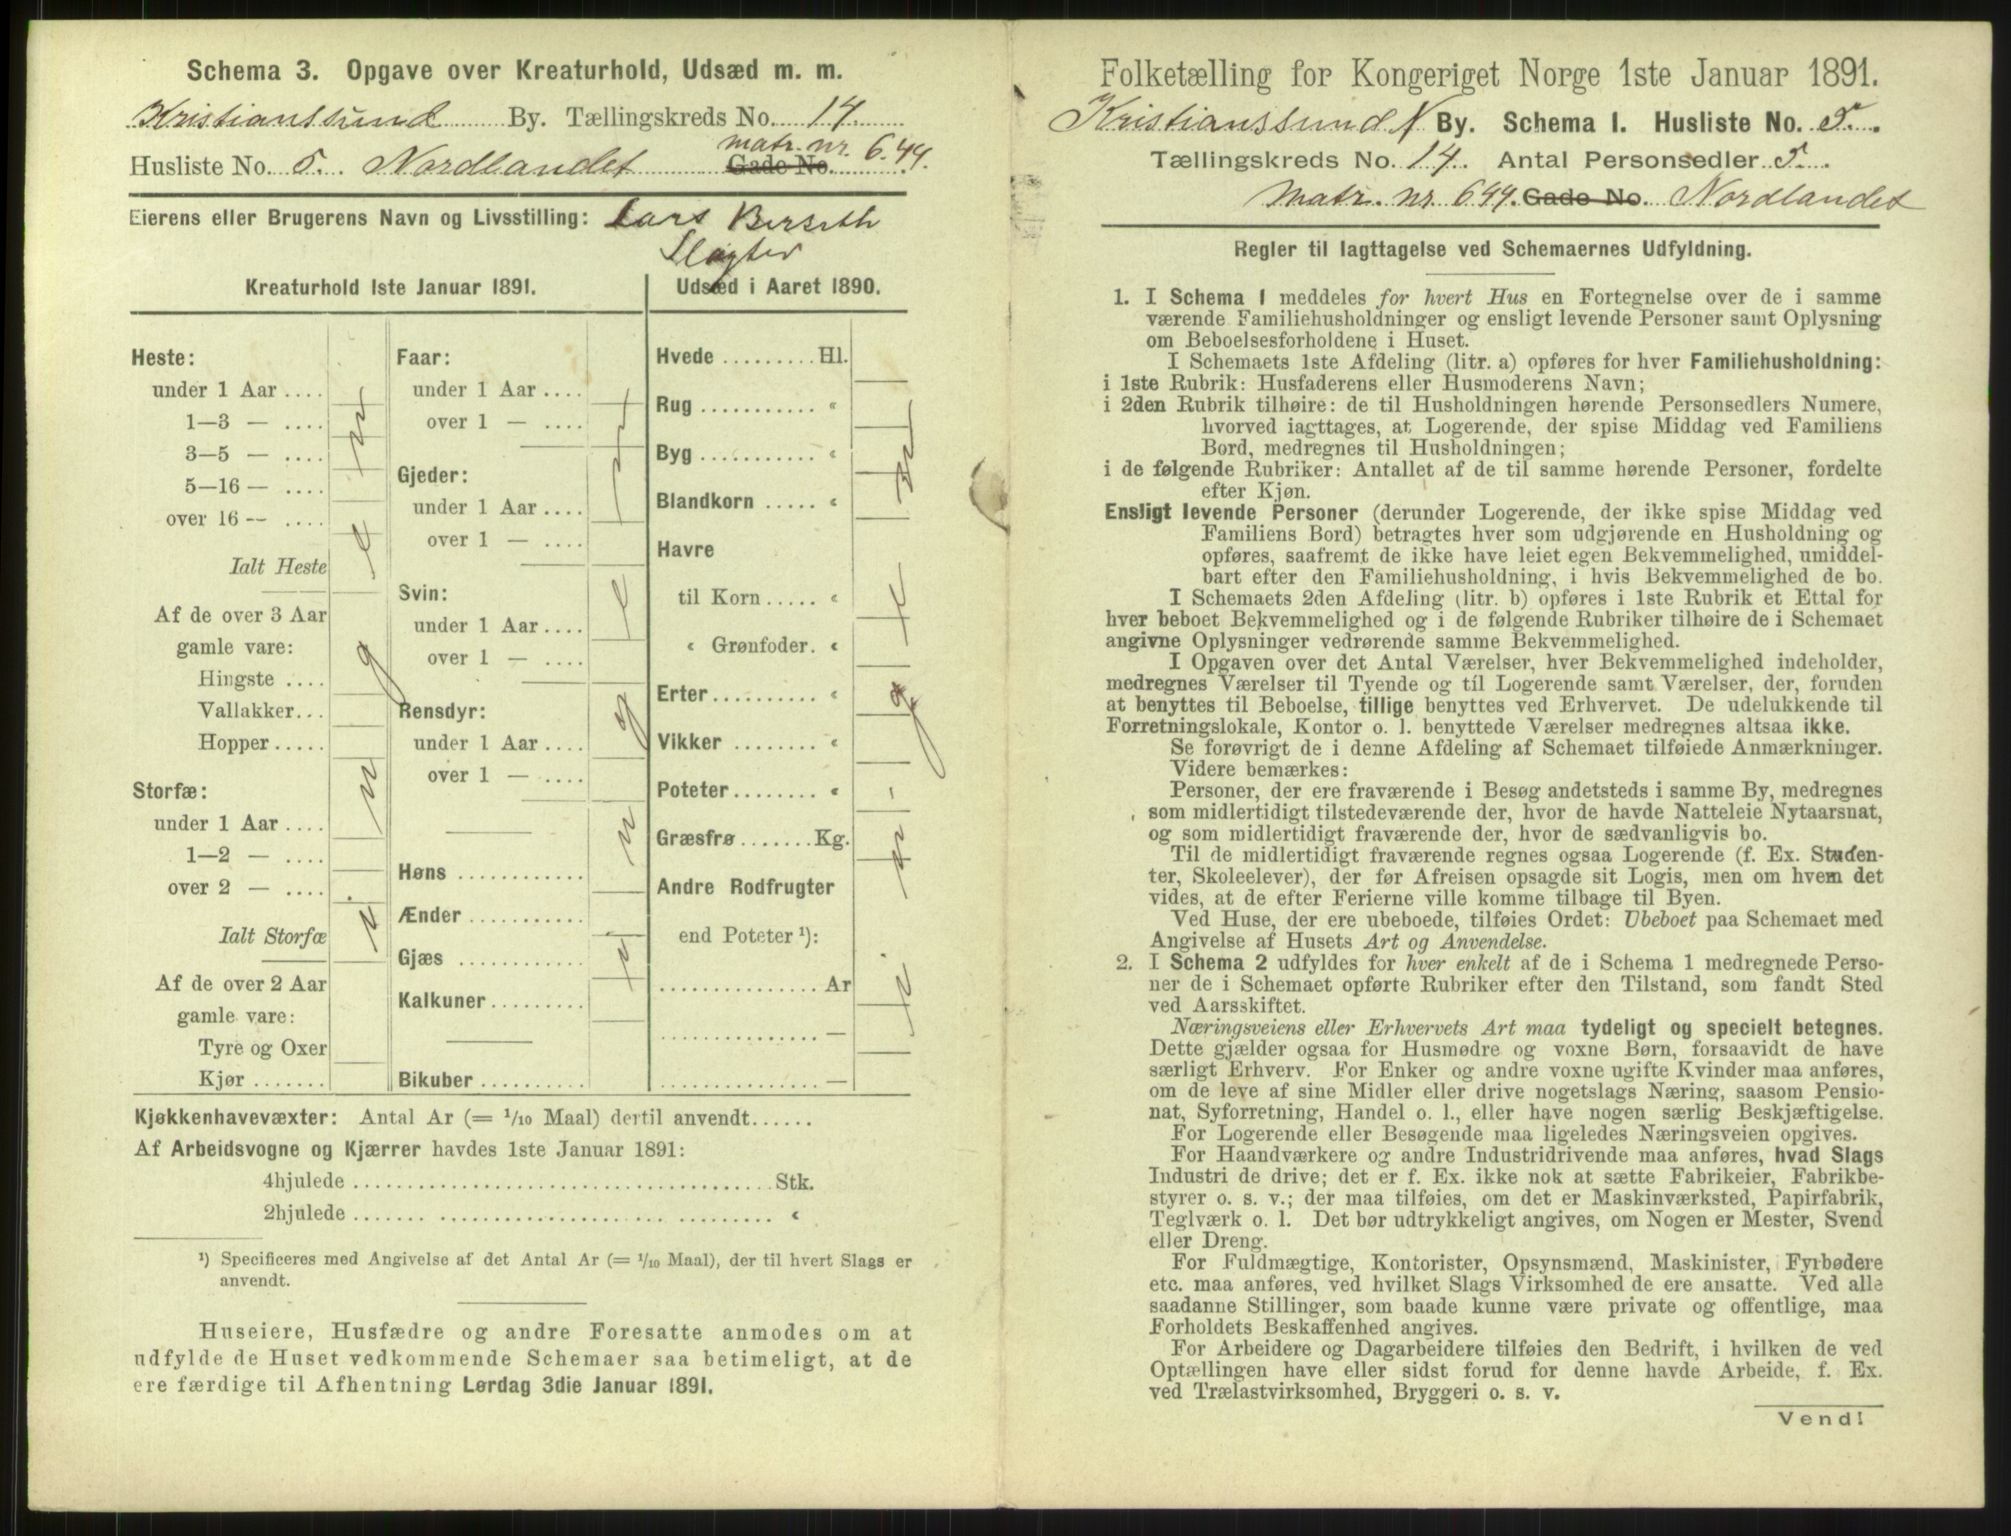 Schema 3. Opgave over Kreaturhold, Udsæd m. m.
Kristianssund By. Tællingskreds No. 14.
matr. nr.
Husliste No. 5. Nordlandet Gade No. 644.
Eierens eller Brugerens Navn og Livsstilling: Lars Berseth
Slagter
Kreaturhold 1ste Januar 1891.
Heste:
under 1 Aar ....
1—3 — ....
3—5 — ....
5—16 — ....
over 16 — ....
Ialt Heste
Af de over 3 Aar
gamle vare:
Hingste ....
Vallakker...
Hopper.....
Storfæ:
under 1 Aar ....
1—2 — ....
over 2 — ....
Ialt Storfæ
Af de over 2 Aar
gamle vare:
Tyre og Oxer
Kjør .......
Faar:
under 1 Aar ....
over 1 — ....
Gjeder:
under 1 Aar ....
over 1 — ....
Svin:
under 1 Aar ....
over 1 — ....
Rensdyr:
under 1 Aar ....
over 1 — ....
Høns ............
Ænder ...........
Gjæs ............
Kalkuner .........
Bikuber ..........
Udsæd i Aaret 1890.
Hvede ......... Hl.
Rug ........... «
Byg ........... «
Blandkorn ..... «
Havre
til Korn ..... «
« Grønfoder. «
Erter .......... «
Vikker ........ «
Poteter ........ «
Græsfrø ....... Kg.
Andre Rodfrugter
end Poteter ¹):
............... Ar
............... —
............... —
Kjøkkenhavevæxter: Antal Ar (= 1/10 Maal) dertil anvendt......
Af Arbeidsvogne og Kjærrer havdes 1ste Januar 1891:
4hjulede ........................................ Stk.
2hjulede ........................................ «
¹) Specificeres med Angivelse af det Antal Ar (= 1/10 Maal), der til hvert Slags er
anvendt.
Huseiere, Husfædre og andre Foresatte anmodes om at
udfylde de Huset vedkommende Schemaer saa betimeligt, at de
ere færdige til Afhentning Lørdag 3die Januar 1891.
Folketælling for Kongeriget Norge 1ste Januar 1891.
Kristianssund N By. Schema I. Husliste No. 5.
Tællingskreds No. 14. Antal Personsedler 5.
Matr. nr. 644. Gade No. Nordlandet
Regler til Iagttagelse ved Schemaernes Udfyldning.
1. I Schema 1 meddeles for hvert Hus en Fortegnelse over de i samme
værende Familiehusholdninger og ensligt levende Personer samt Oplysning
om Beboelsesforholdene i Huset.
I Schemaets 1ste Afdeling (litr. a) opføres for hver Familiehusholdning:
i 1ste Rubrik: Husfaderens eller Husmoderens Navn;
i 2den Rubrik tilhøire: de til Husholdningen hørende Personsedlers Numere,
hvorved iagttages, at Logerende, der spise Middag ved Familiens
Bord, medregnes til Husholdningen;
i de følgende Rubriker: Antallet af de til samme hørende Personer, fordelte
efter Kjøn.
Ensligt levende Personer (derunder Logerende, der ikke spise Middag ved
Familiens Bord) betragtes hver som udgjørende en Husholdning og
opføres, saafremt de ikke have leiet egen Bekvemmelighed, umiddel-
bart efter den Familiehusholdning, i hvis Bekvemmelighed de bo.
I Schemaets 2den Afdeling (litr. b) opføres i 1ste Rubrik et Ettal for
hver beboet Bekvemmelighed og i de følgende Rubriker tilhøire de i Schemaet
angivne Oplysninger vedrørende samme Bekvemmelighed.
I Opgaven over det Antal Værelser, hver Bekvemmelighed indeholder,
medregnes Værelser til Tyende og til Logerende samt Værelser, der, foruden
at benyttes til Beboelse, tillige benyttes ved Erhvervet. De udelukkende til
Forretningslokale, Kontor o. l. benyttede Værelser medregnes altsaa ikke.
Se forøvrigt de i denne Afdeling af Schemaet tilføiede Anmærkninger.
Videre bemærkes:
Personer, der ere fraværende i Besøg andetsteds i samme By, medregnes
som midlertidigt tilstedeværende der, hvor de havde Natteleie Nytaarsnat,
og som midlertidigt fraværende der, hvor de sædvanligvis bo.
Til de midlertidigt fraværende regnes ogsaa Logerende (f. Ex. Studen-
ter, Skoleelever), der før Afreisen opsagde sit Logis, men om hvem det
vides, at de efter Ferierne ville komme tilbage til Byen.
Ved Huse, der ere ubeboede, tilføies Ordet: Ubeboet paa Schemaet med
Angivelse af Husets Art og Anvendelse.
2. I Schema 2 udfyldes for hver enkelt af de i Schema 1 medregnede Perso-
ner de i Schemaet opførte Rubriker efter den Tilstand, som fandt Sted
ved Aarsskiftet.
Næringsveiens eller Erhvervets Art maa tydeligt og specielt betegnes.
Dette gjælder ogsaa for Husmødre og voxne Børn, forsaavidt de have
særligt Erhverv. For Enker og andre voxne ugifte Kvinder maa anføres,
om de leve af sine Midler eller drive nogetslags Næring, saasom Pensio-
nat, Syforretning, Handel o. l., eller have nogen særlig Beskjæftigelse.
For Logerende eller Besøgende maa ligeledes Næringsveien opgives.
For Haandværkere og andre Industridrivende maa anføres, hvad Slags
Industri de drive; det er f. Ex. ikke nok at sætte Fabrikeier, Fabrikbe-
styrer o. s. v.; der maa tilføies, om det er Maskinværksted, Papirfabrik,
Teglværk o. l. Det bør udtrykkeligt angives, om Nogen er Mester, Svend
eller Dreng.
For Fuldmægtige, Kontorister, Opsynsmænd, Maskinister, Fyrbødere
etc. maa anføres, ved hvilket Slags Virksomhed de ere ansatte. Ved alle
saadanne Stillinger, som baade kunne være private og offentlige, maa
Forholdets Beskaffenhed angives.
For Arbeidere og Dagarbeidere tilføies den Bedrift, i hvilken de ved
Optællingen have eller sidst forud for denne havde Arbeide, f. Ex.
ved Trælastvirksomhed, Bryggeri o. s. v.
Vend!